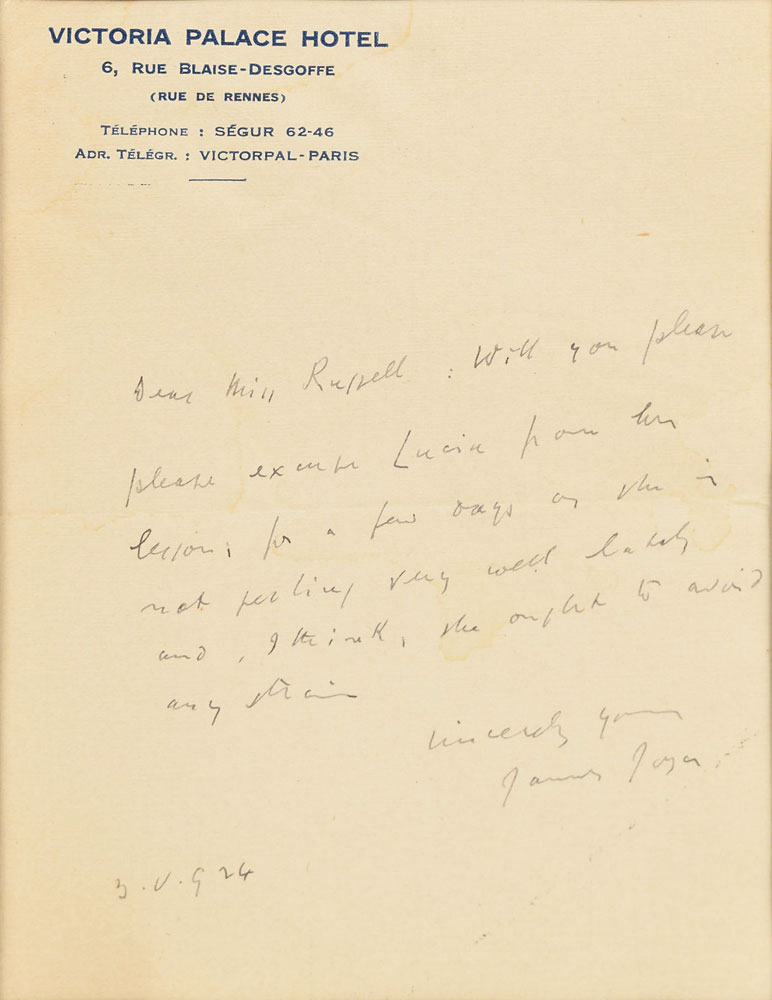 VICTORIA PALACE HOTEL
6, RUE BLAISE-DESGOFFE
(RUE DE RENNES)
TÉLÉPHONE : SÉGUR 62-46
ADR. TÉLÉGR. : VICTORPAL-PARIS
Dear Miss Russell : Will you please
please excuse Lucia from her
lessons for a few days as she is
not feeling very well lately
and, I think, she ought to avoid
any strain
sincerely yours
James Joyce
3.V.924